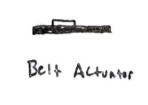 Belt Actuator